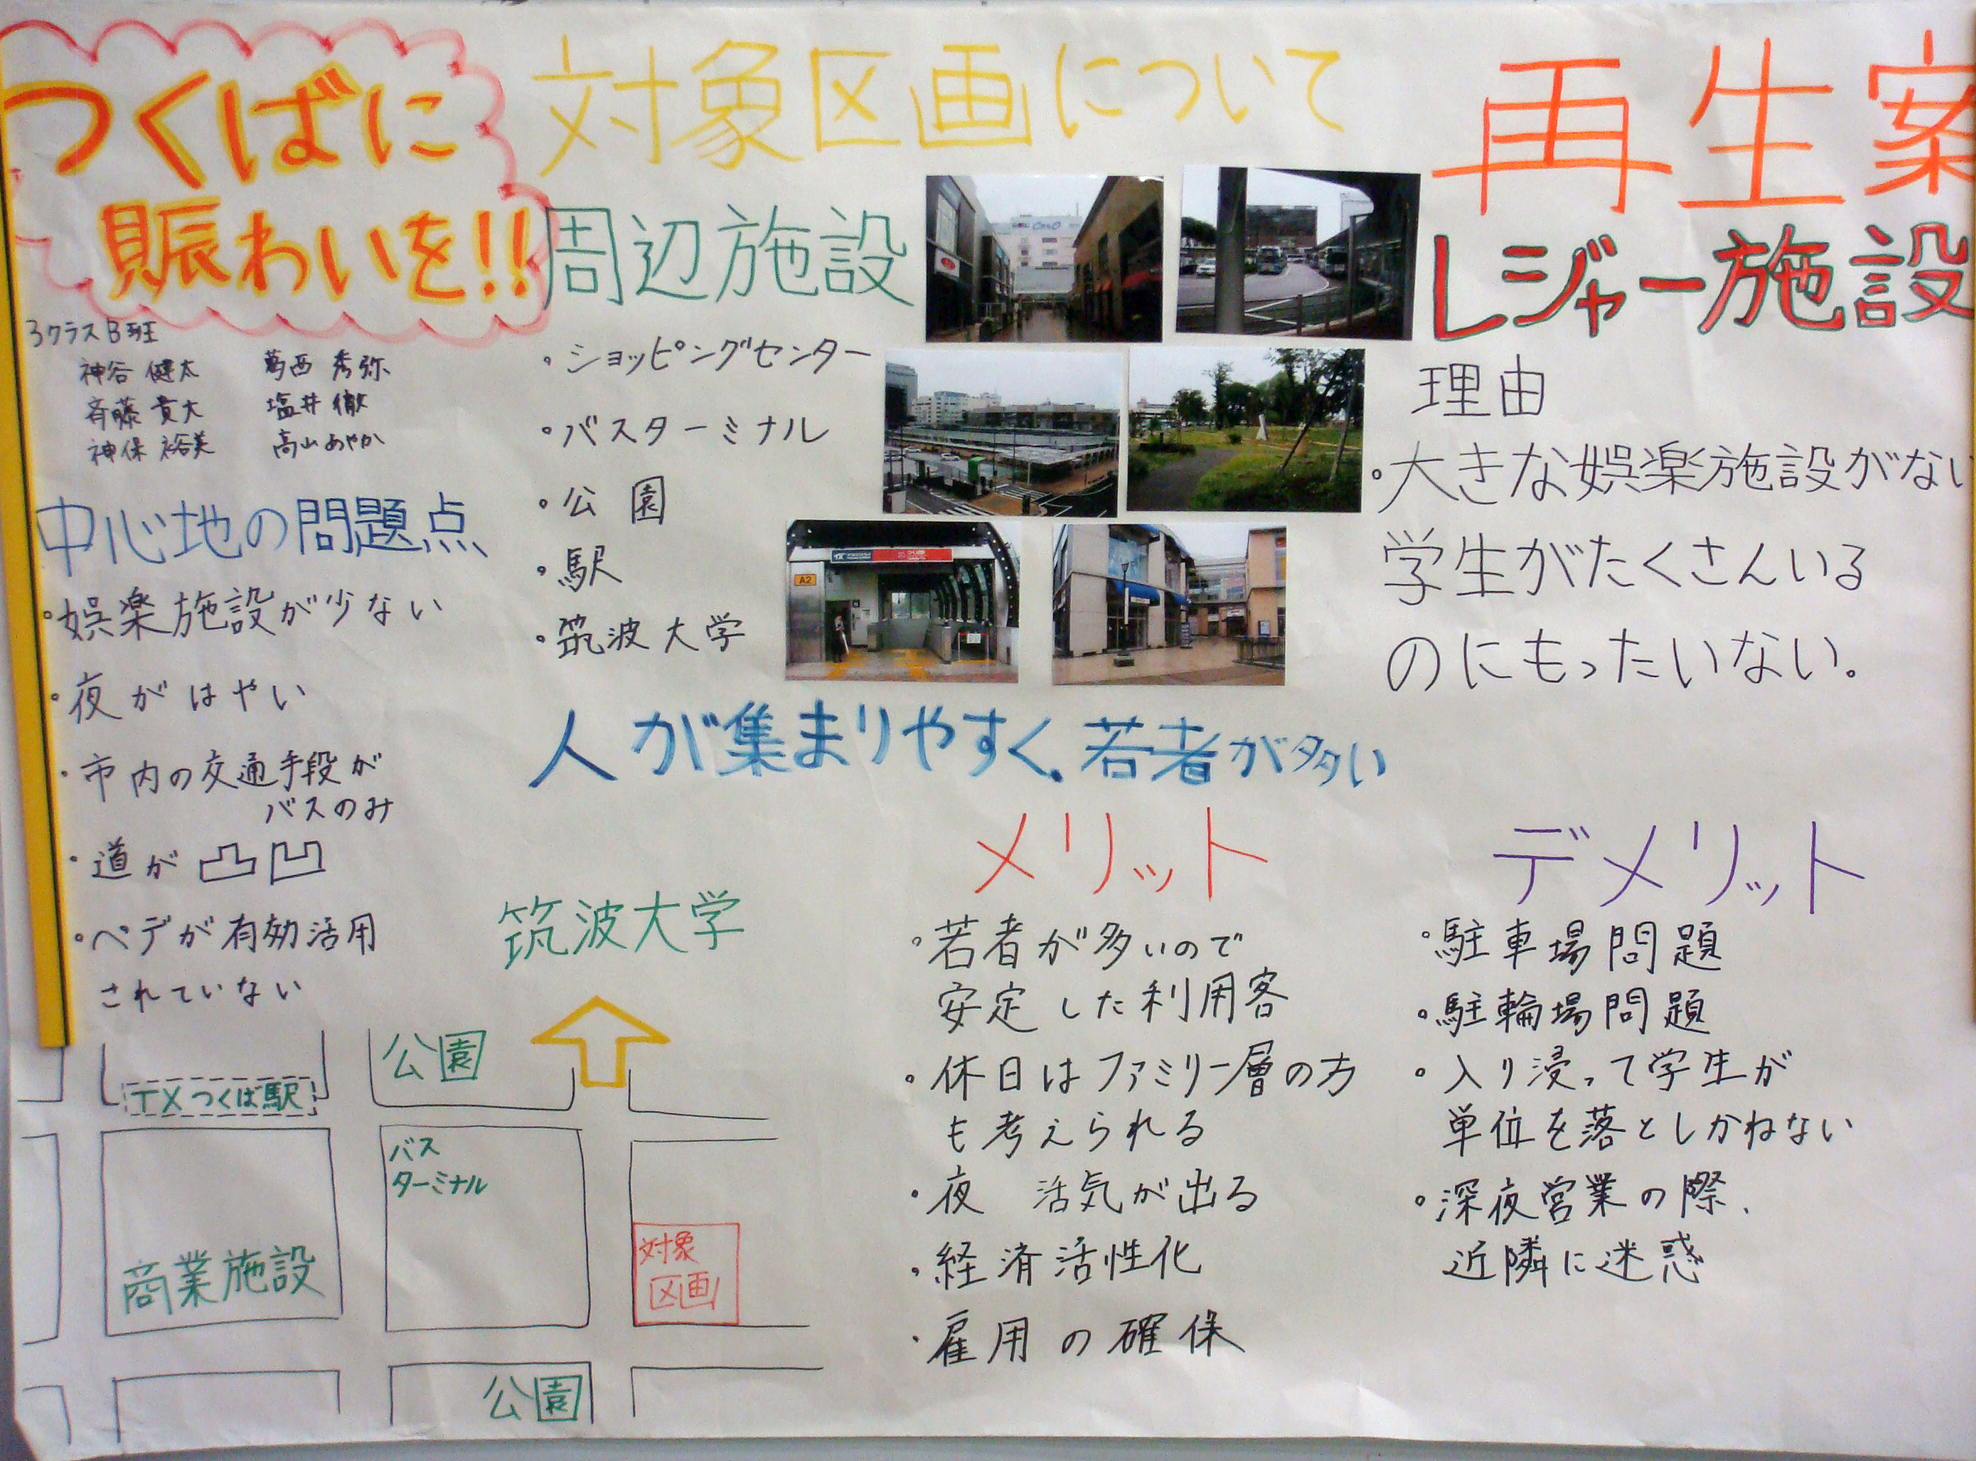 つくばに
賑わいを!!
3クラスB班
神谷 健太 葛西 秀弥
斉藤 貴大 塩井 徹
神保 裕美 高山 あやか
中心地の問題点
・娯楽施設が少ない
・夜がはやい
・市内の交通手段が
バスのみ
・道が凸凹
・ペデが有効活用
されていない
対象区画について
周辺施設
・ショッピングセンター
・バスターミナル
・公園
・駅
・筑波大学
A2
人が集まりやすく、若者が多い
再生案
レジャー施設
理由
・大きな娯楽施設がない
学生がたくさんいる
のにもったいない。
メリット
・若者が多いので
安定した利用客
・休日はファミリー層の方
も考えられる
・夜 活気が出る
・経済活性化
・雇用の確保
デメリット
・駐車場問題
・駐輪場問題
・入り浸って学生が
単位を落としかねない
・深夜営業の際、
近隣に迷惑
筑波大学
公園
TXつくば駅
バス
ターミナル
商業施設
対象
区画
公園